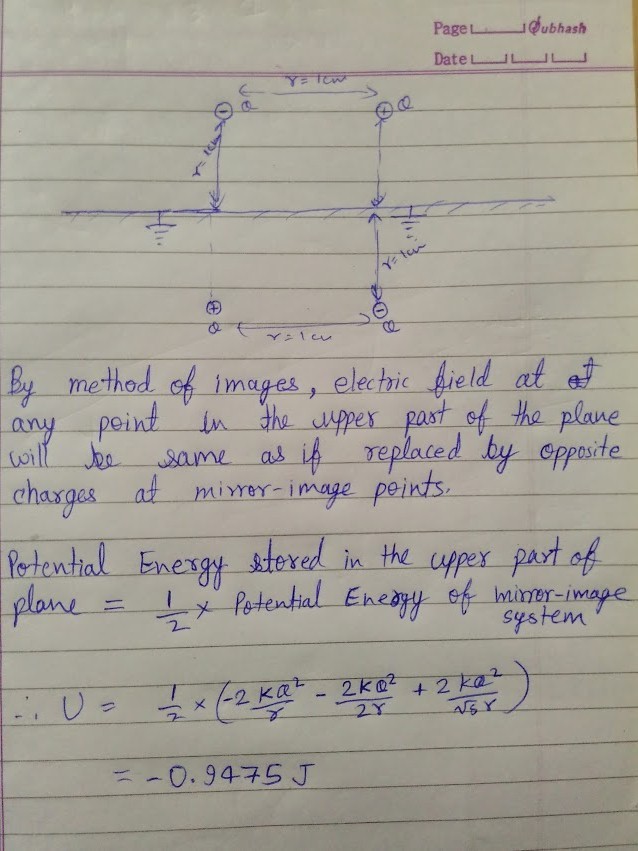 Page Subhash
Date
r = 1cm
⊖ Q ⊕ Q
r = 1cm
r = 1cm
⊕ ⊖
Q r = 1cm Q
By method of images, electric field at at
any point in the upper part of the plane
will be same as if replaced by opposite
charges at mirror-image points.
Potential Energy stored in the upper part of
plane = 1/2 × Potential Energy of mirror-image
system
∴ U = 1/2 × (-2 KQ²/r - 2KQ²/2r + 2 KQ²/√5 r)
= -0.9475 J